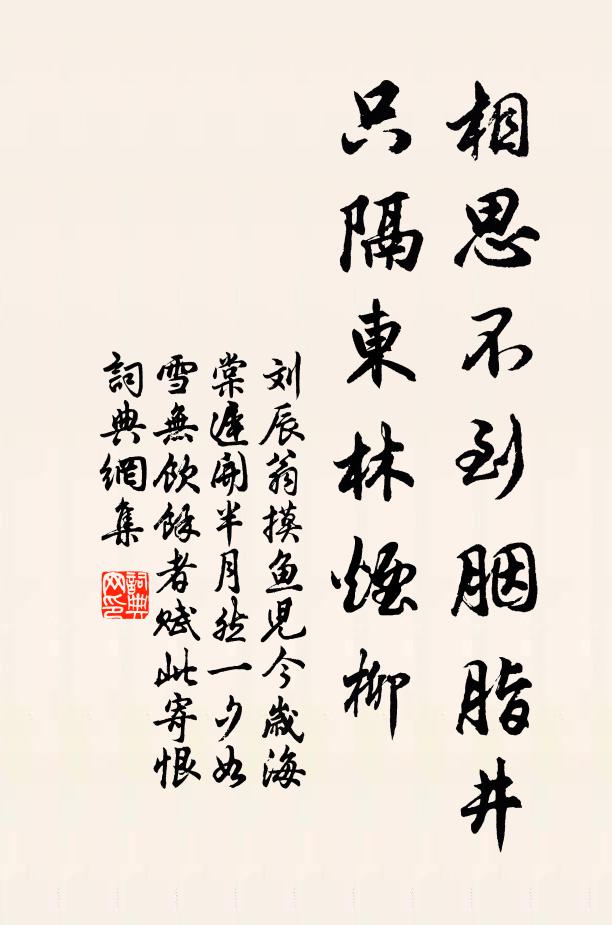 相思不到胭脂井
只隔東林煙柳
刘辰翁摸鱼児今歲海
棠遲開半月然一夕如
雪無飲餘者賦此寄恨
詞典網集
詞典网印